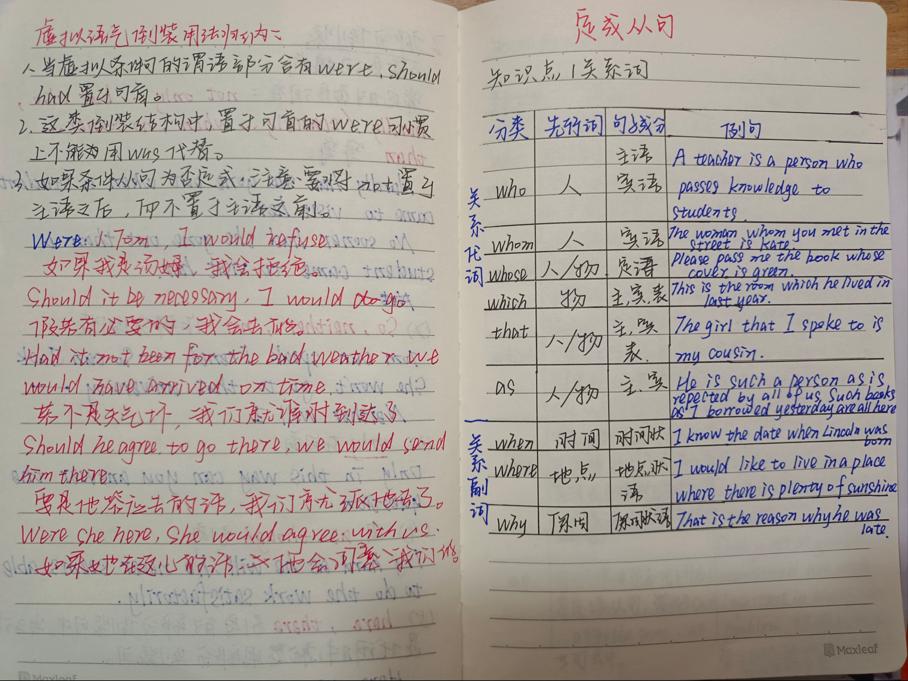 虚拟语气倒装用法归纳：
1、当虚拟条件句的谓语部分含有were, should
had 置于句首。
2. 这类倒装结构中，置于句首的were习惯
上不能用was代替。
3. 如果条件从句为否定式，注意要将not置于
主语之后，而不置于主语之前。
Were I Tom, I would refuse.
如果我是汤姆，我会拒绝
Should it be necessary, I would go
假若有必要的，我会去的。
Had it not been for the bad weather we
would have arrived on time.
若不是天气坏，我们就准时到达了
Should he agree to go there, we would send
him there
要是他答应去的话，我们就派他去了。
Were she here, she would agree with us.
如果她在这儿的话，她会同意我们的
定或从句
知识点1关系词
分类 先行词 句成分 例句
关系代词
who 人 主语 宾语 A teacher is a person who
passes knowledge to
students.
whom 人 宾语 The woman whom you met in the
street is Kate.
whose 人/物 定语 Please pass me the book whose
cover is green.
which 物 主.宾.表 This is the room which he lived in
last year.
that 人/物 主.宾 表. The girl that I spoke to is
my cousin.
as 人/物 主.宾 He is such a person as is
repected by all of us. Such books
as I borrowed yesterday are all here
关系副词
when 时间 时间状 I know the date when Lincoln was
born
where 地点 地点状语 I would like to live in a place
where there is plenty of sunshine
why 原因 原因状语 That is the reason why he was
late.
Maxleaf
Maxleaf